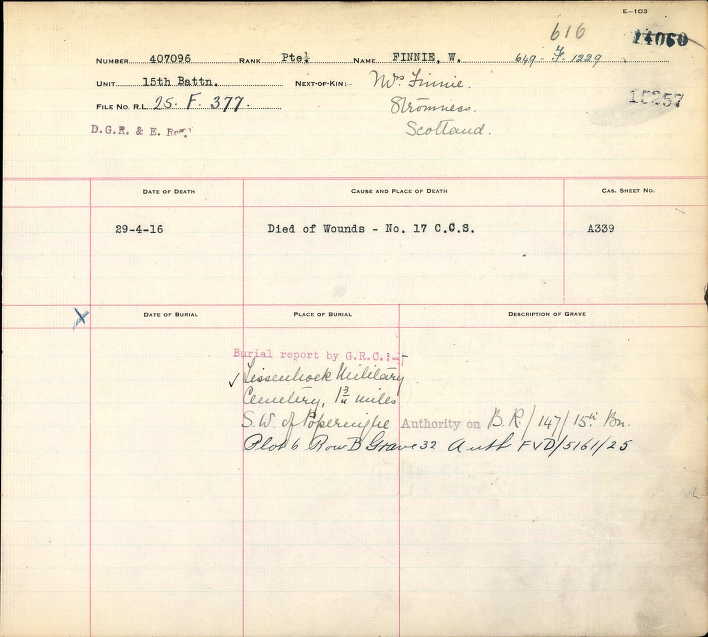 E-103
616
14060
NUMBER 407096 RANK Pte. NAME FINNIE, W. 649-F.1229
UNIT 15th Battn. NEXT-OF-KIN:- Mrs Finnie.
FILE NO. R.L. 25. F. 377. Stromness.
D.G.R. & E. Scotland.
DATE OF DEATH CAUSE AND PLACE OF DEATH CAS. SHEET NO.
29-4-16 Died of Wounds - No. 17 C.C.S. A339
X DATE OF BURIAL PLACE OF BURIAL DESCRIPTION OF GRAVE
Burial report by G.R.C.:-
Lissenhoek Military
Cemetery, 1¾ miles
S.W. of Poperinghe Authority on B.R/147/15th Bn.
Plot 6 Row B Grave 32 Auth FVD/5161/25